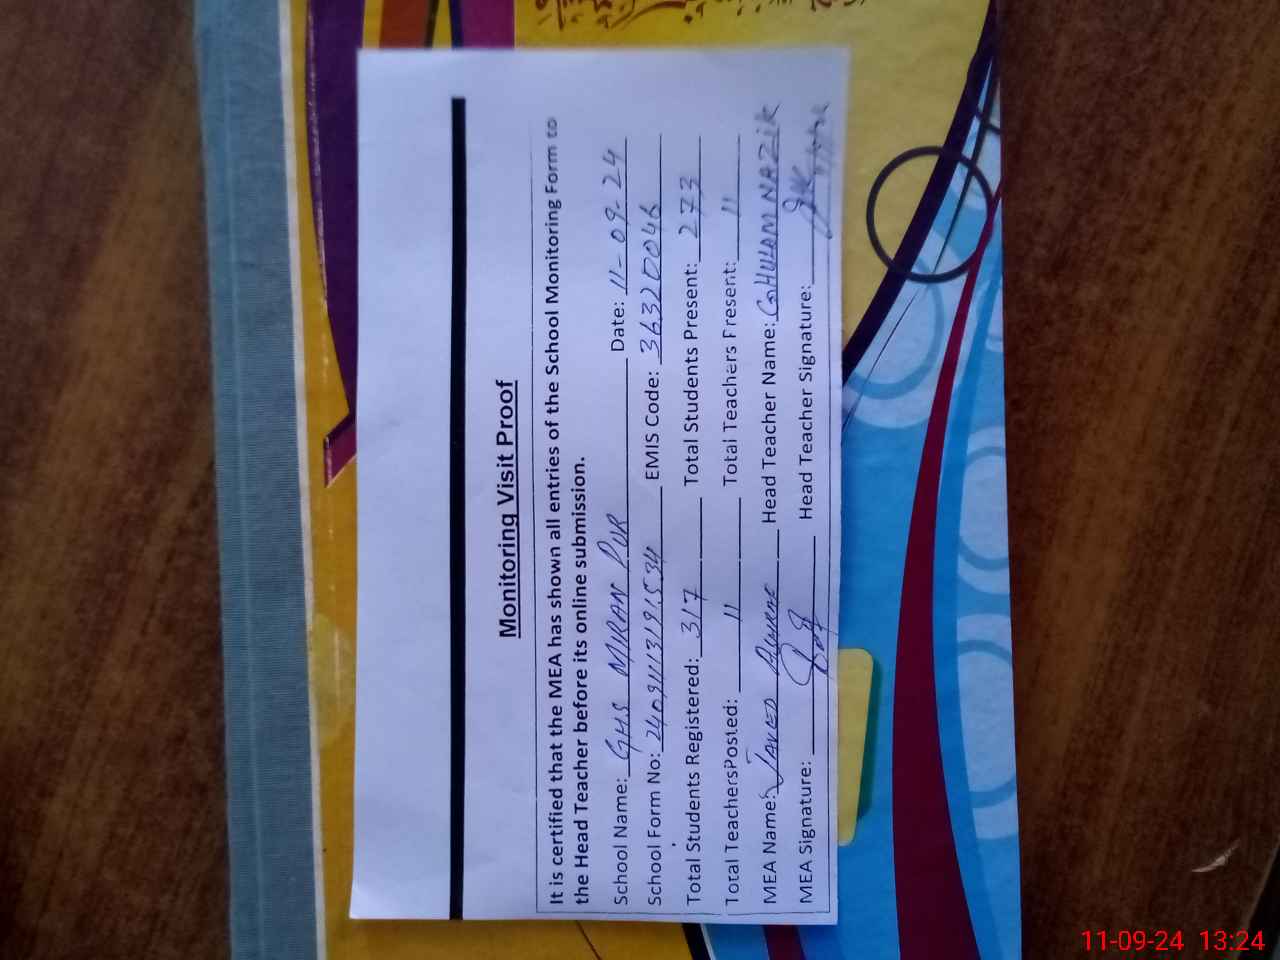 Monitoring Visit Proof
It is certified that the MEA has shown all entries of the School Monitoring Form to
the Head Teacher before its online submission.
School Name: GHS MIRAN PUR Date: 11-09-24
School Form No: 24091113191534 EMIS Code: 36320046
Total Students Registered: 317 Total Students Present: 273
Total TeachersPosted: 11 Total Teachers Present: 11
MEA Name: JAVED Head Teacher Name: GHULAM NAZIK
MEA Signature: Head Teacher Signature:
11-09-24 13:24